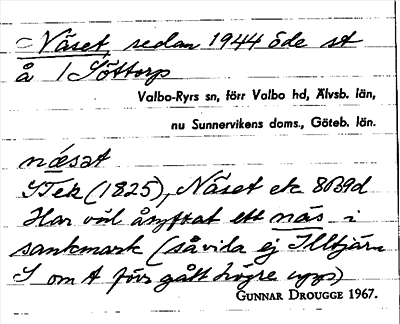 Näset, sedan 1944 öde st
å 1 Töttorp
Valbo-Ryrs sn, förr Valbo hd, Älvsb. län,
nu Sunnervikens doms., Göteb. län.
næsat
(1825), Näset ek 80B9d
Har väl åsyftat ett näs i
sankmark (såvida ej Illtjärn
om A förr gått högre upp)
GUNNAR DROUGGE 1967.